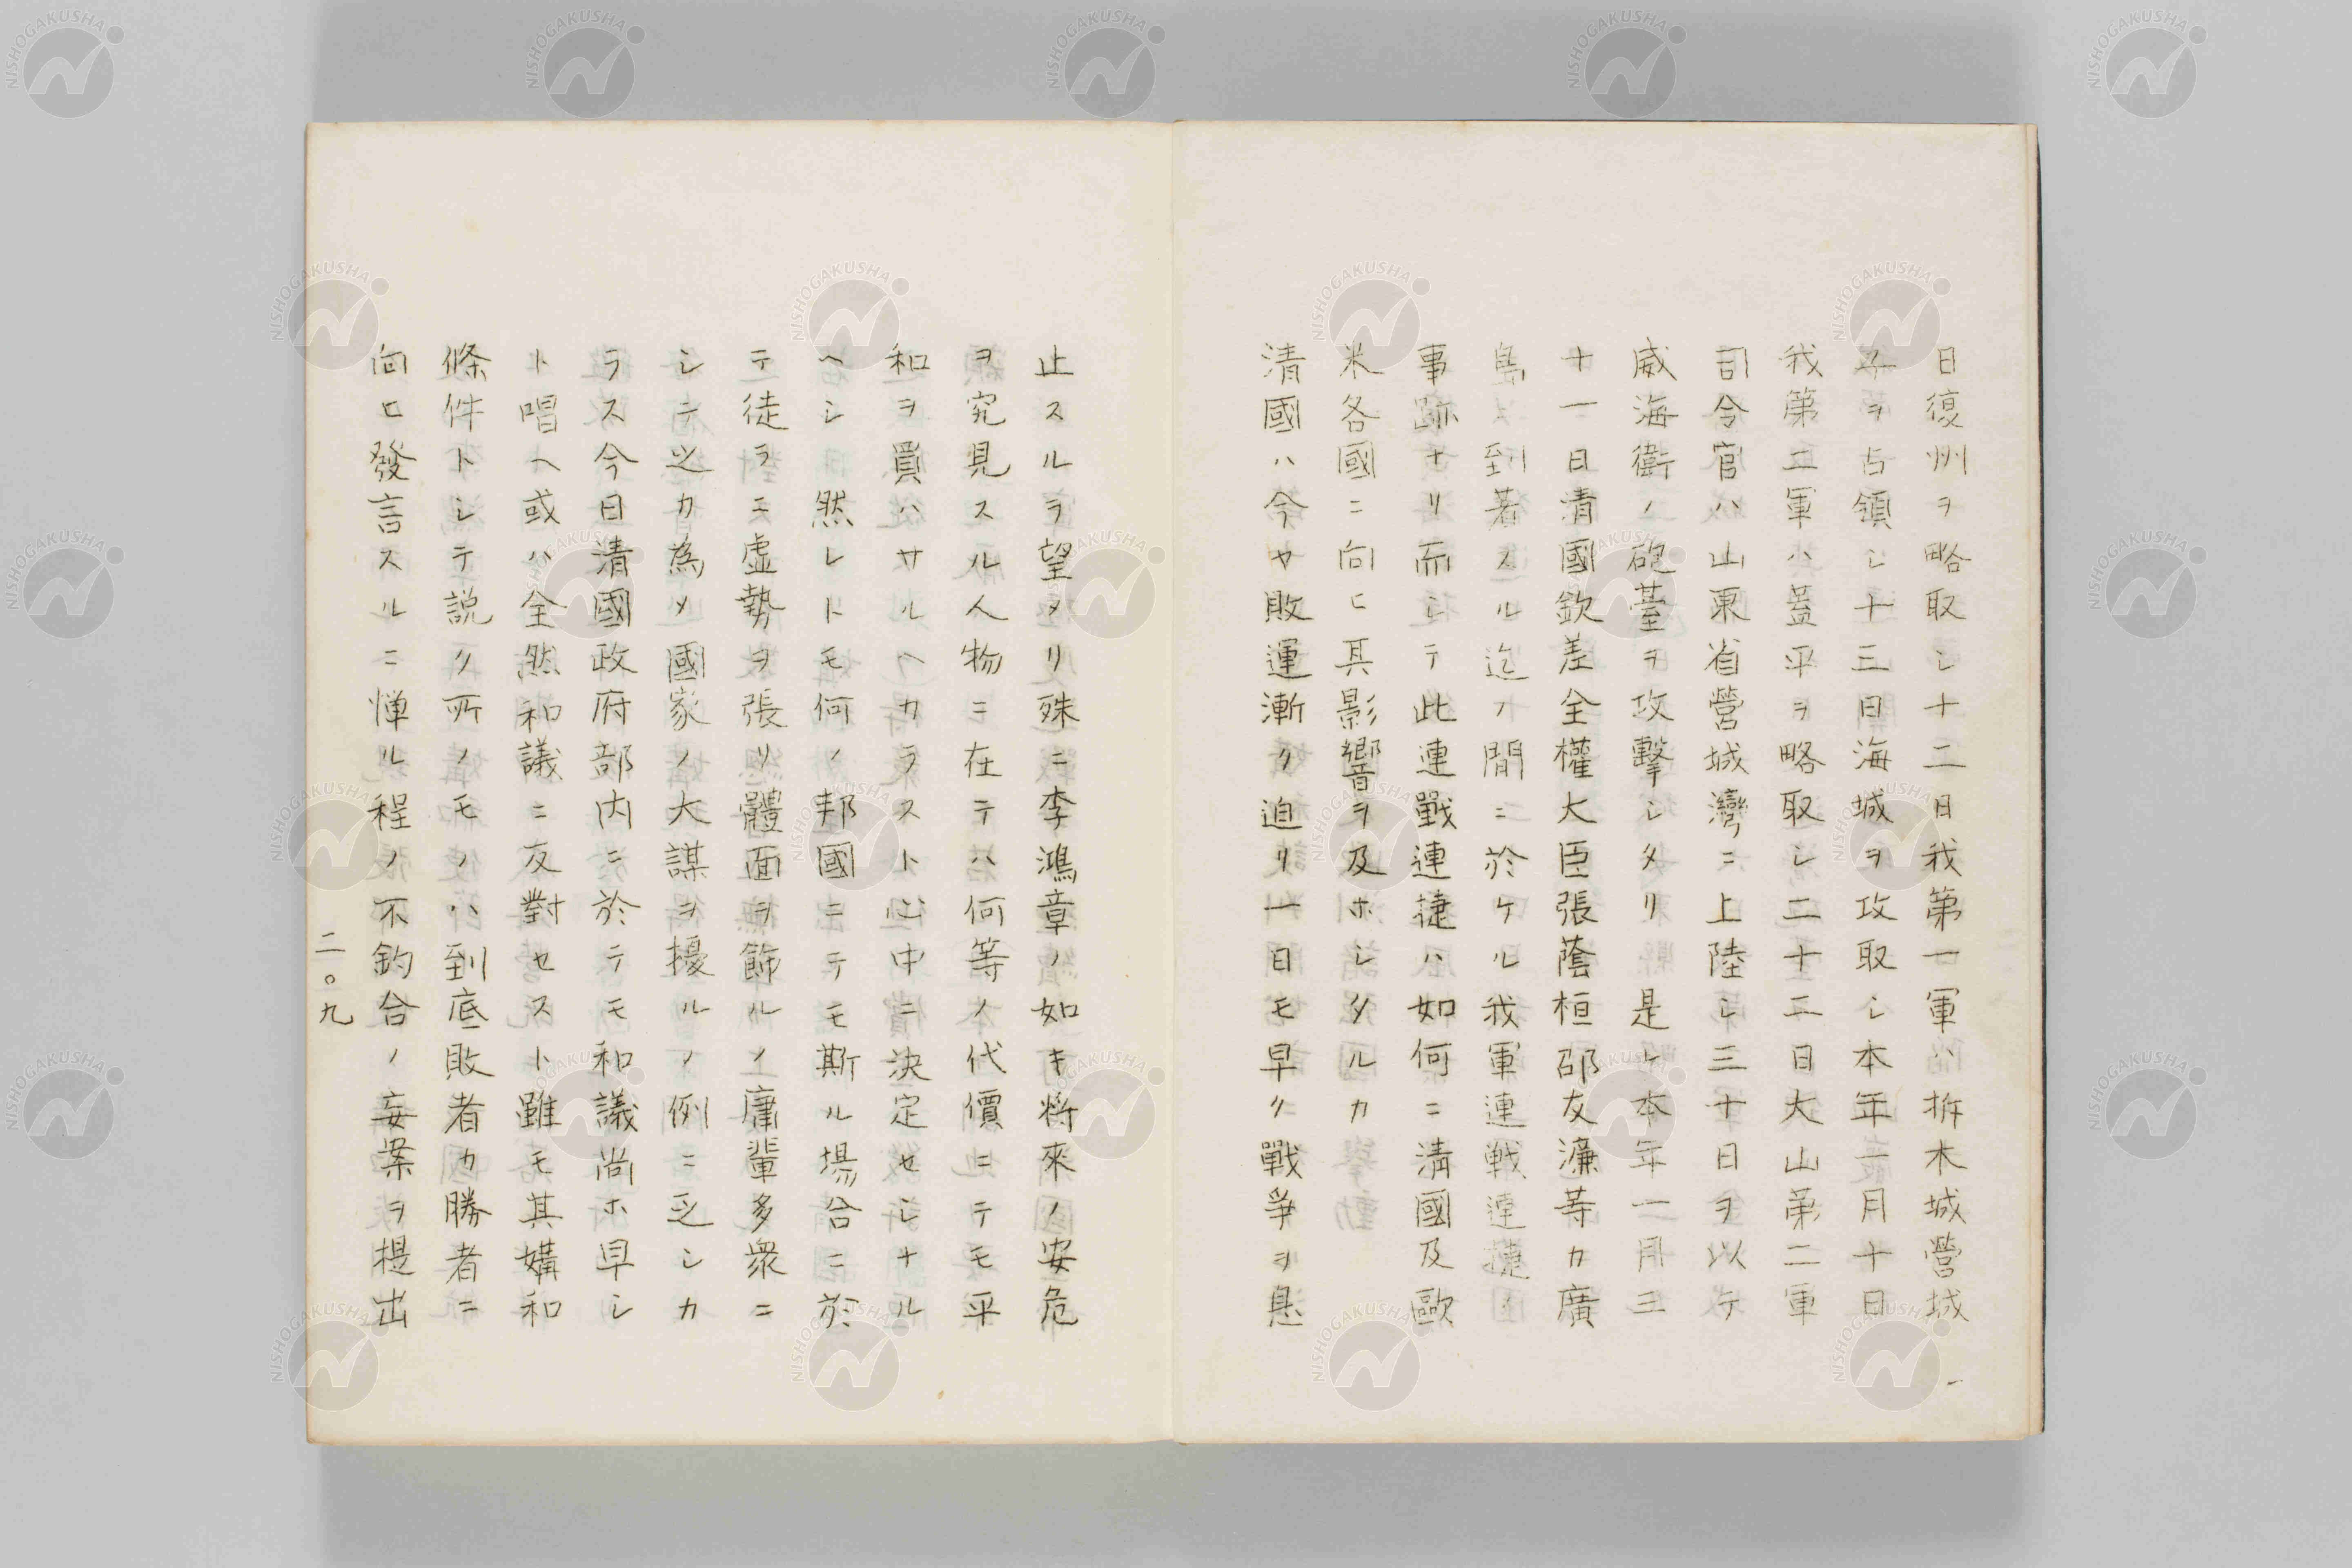 日復州ヲ略取シ十二日我第一軍ハ柝木城營城
子ヲ占領シ十三日海城ヲ攻取シ本年一月十日
我第二軍ハ蓋平ヲ略取シ二十二日大山第二軍
司令官ハ山東省營城灣ニ上陸シ三十日ヲ以テ
威海衛ノ砲臺ヲ攻擊シタリ是レ本年一月三
十一日清國欽差全權大臣張蔭桓邵友濂等カ廣
島ニ到著スル迄ノ間ニ於ケル我軍連戦連捷ノ
事跡ナリ而シテ此連戰連捷ハ如何ニ清國及歐
米各國ニ向ヒ其影響ヲ及ホシタルカ
清國ハ今ヤ敗運漸ク迫リ一日モ早ク戰爭ヲ息
止スルヲ望メリ殊ニ李鴻章ノ如キ將來ノ安危
ヲ究見スル人物ニ在テハ何等ノ代價ニテモ平
和ヲ買ハサルヘカラスト心中ニ決定セシナル
ヘシ然レトモ何ノ邦國ニテモ斯ル場合ニ於
テ徒ラニ虛勢ヲ張リ體面ヲ飾ルノ庸輩多衆ニ
シテ之カ為メ國家ノ大謀ヲ擾ルノ例ニ乏シカ
ラス今日清國政府部内ニ於テモ和議尚ホ早シ
ト唱ヘ或ハ全然和議ニ反對セスト雖モ其媾和
條件トシテ説ク所ノモノハ到底敗者カ勝者ニ
向ヒ發言スルニ憚ル程ノ不釣合ノ妄案ヲ提出
二〇九
NISHOGAKUSHA